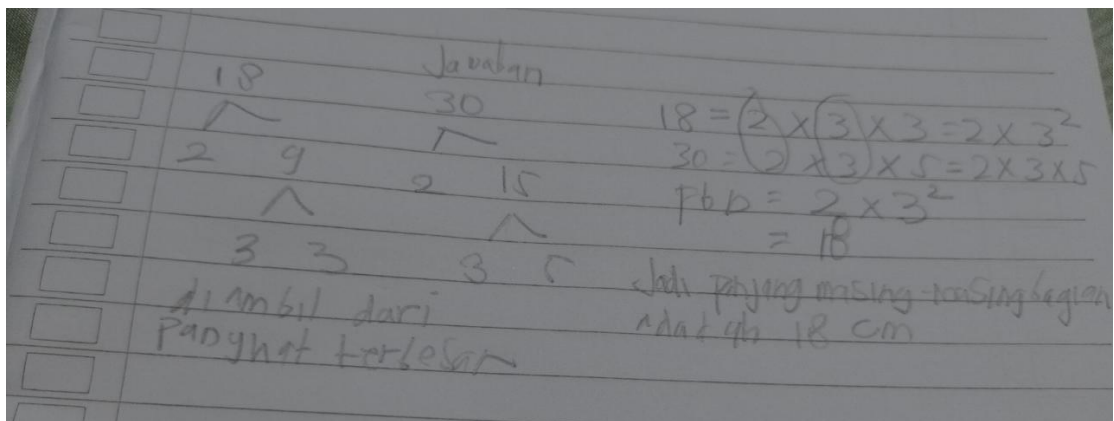 Jawaban
18 30
2 9 2 15
3 3 3 5
diambil dari
Pangkat terbesar
18 = 2 x 3 x 3 = 2 x 3²
30 = 2 x 3 x 5 = 2x3x5
fbb = 2 x 3²
= 18
Jadi panjang masing-masing bagian
adalah 18 cm